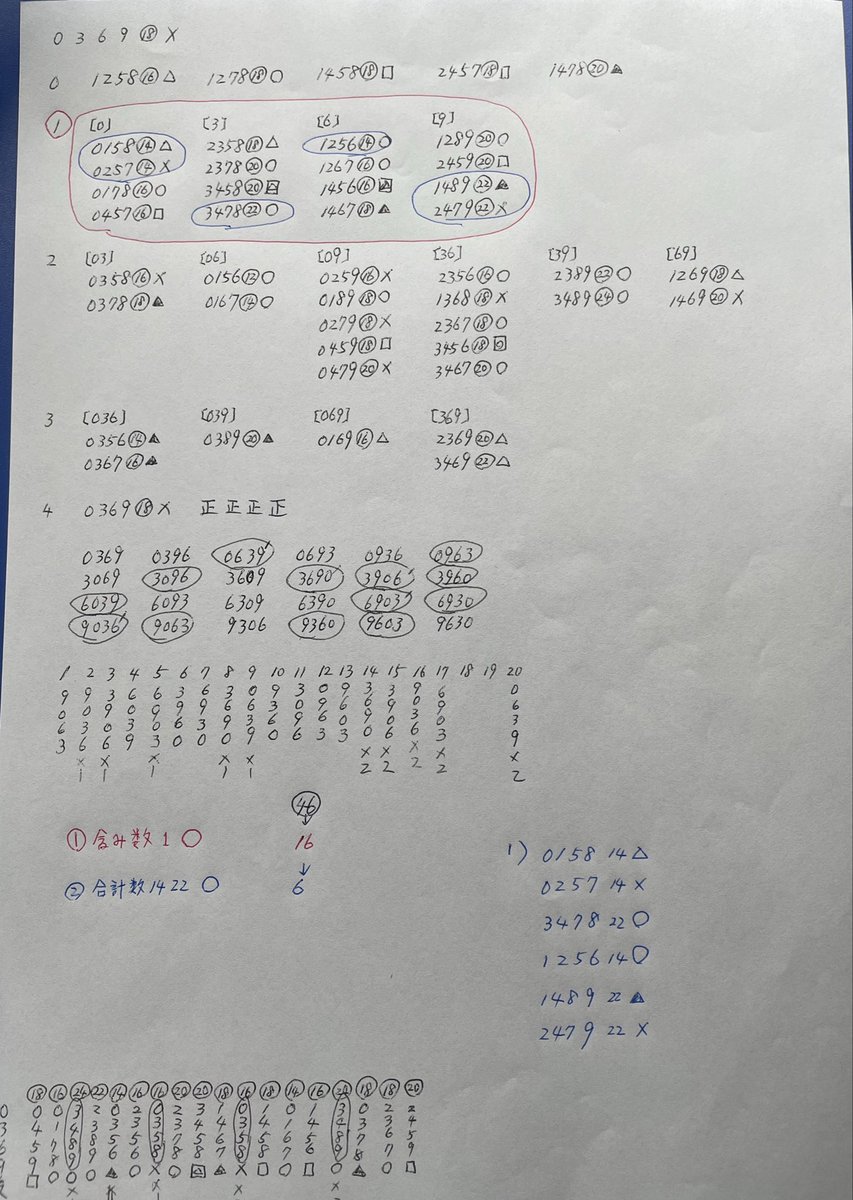 0 3 6 9 ⑱ X
0 1258⑯△ 1278⑱○ 1458⑱□ 2457⑱□ 1478⑳▲
① [0] [3] [6] [9]
0158⑭△ 2358⑱△ 1256⑭○ 1289⑳○
0257⑭X 2378⑳○ 1267⑯○ 2459⑳□
0178⑯○ 3458⑳ 1456⑯ 1489㉒▲
0457⑯□ 3478㉒○ 1467⑱▲ 2479㉒X
2 [03] [06] [09] [36] [39] [69]
0358⑯X 0156⑫○ 0259⑯X 2356⑯○ 2389㉒○ 1269⑱△
0378⑱▲ 0167⑭○ 0189⑱○ 1368⑱X 3489㉔○ 1469⑳X
0279⑱X 2367⑱○
0459⑱□ 3456⑱
0479⑳X 3467⑳○
3 [036] [039] [069] [369]
0356⑭▲ 0389⑳▲ 0169⑯△ 2369⑳△
0367⑯▲ 3469㉒△
4 0369⑱X 正正正正
0369 0396 0639 0693 0936 0963
3069 3096 3609 3690 3906 3960
6039 6093 6309 6390 6903 6930
9036 9063 9306 9360 9603 9630
1 2 3 4 5 6 7 8 9 10 11 12 13 14 15 16 17 18 19 20
9 9 3 6 6 3 6 3 0 9 3 0 9 3 3 9 6 0
0 0 9 0 9 9 9 6 6 3 0 9 6 6 9 0 9 6
6 3 0 3 0 6 3 9 3 6 9 6 0 9 0 3 0 3
3 6 6 9 3 0 0 0 9 0 6 3 3 0 6 6 3 9
X X X X X X X X X X
1 1 1 1 1 2 2 2 2 2
㊻
↓
① 含み数 1 ○ 16
↓
② 合計数 14 22 ○ 6
1) 0158 14 △
0257 14 X
3478 22 ○
1256 14 ○
1489 22 ▲
2479 22 X
⑱ ⑯ ㉔ ㉒ ⑭ ⑯ ⑯ ⑳ ⑳ ⑱ ⑯ ⑱ ⑭ ⑯ ㉔ ⑱ ⑱ ⑳
0 0 0 3 2 0 2 0 2 3 1 0 1 0 1 3 0 2 2
3 4 1 4 3 3 3 3 3 4 4 3 4 1 4 4 3 3 4
6 5 7 8 8 5 5 5 7 5 6 5 5 6 5 8 7 6 5
9 9 8 9 9 6 6 8 8 8 7 8 8 7 6 9 8 7 9
□ ○ ○ ○ ▲ ○ X ○ ▲ X □ ○ □ ○ ▲ ○ □